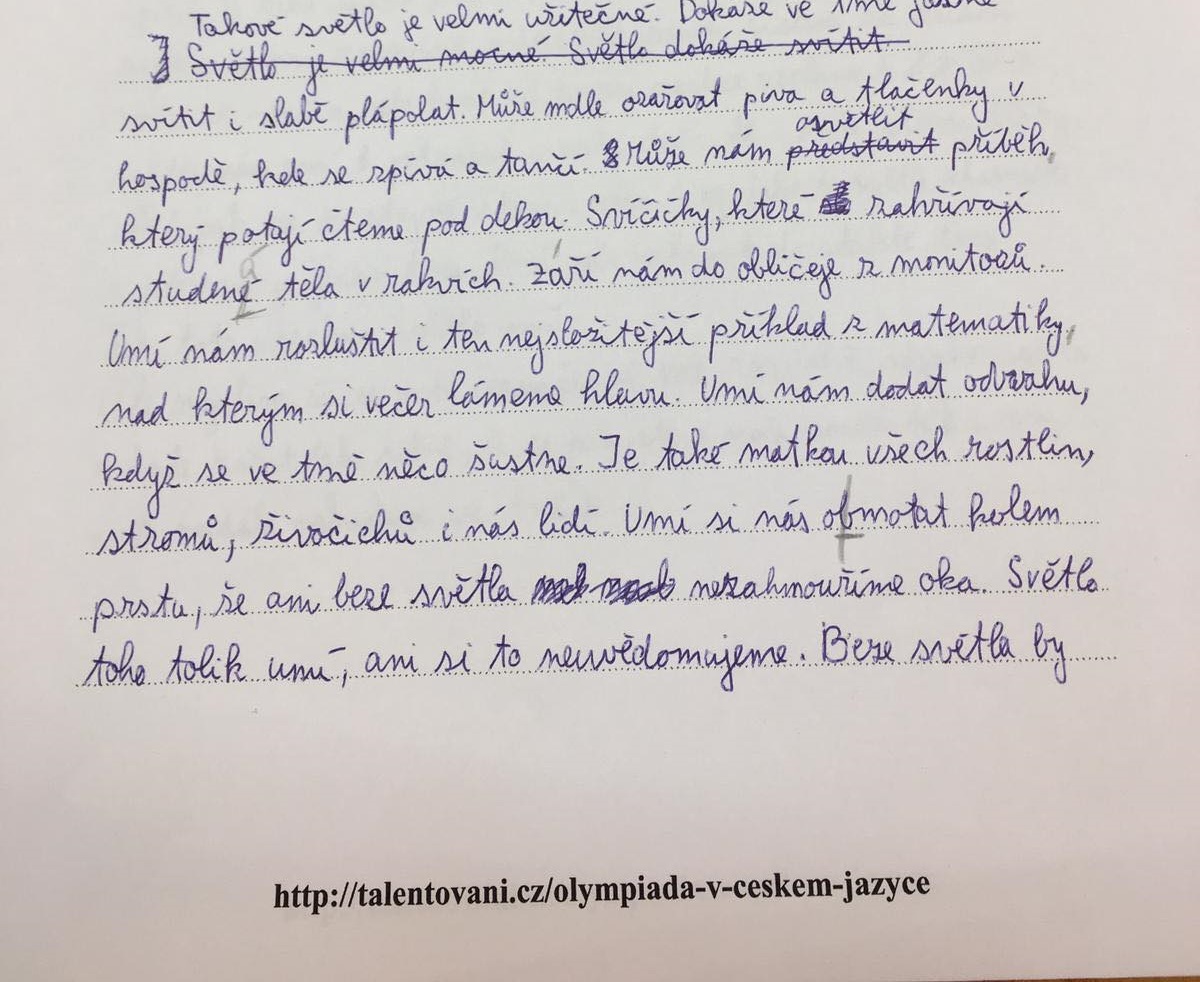 Takové světlo je velmi užitečné. Dokáže ve tmě jasně
Světlo je velmi mocné Světlo dokáže svítit
svítit i slabě plápolat. Může mdle ozařovat piva a tlačenky v
osvětlit
hospodě, kde se zpívá a tančí. Může nám představit příběh,
který potají čteme pod dekou. Svíčičky, které zahřívají
studené těla v rakvích. Září nám do obličeje z monitorů.
Umí nám rozluštit i ten nejsložitější příklad z matematiky,
nad kterým si večer lámeme hlavu. Umí nám dodat odvahu,
když se ve tmě něco šustne. Je také matkou všech rostlin,
stromů, živočichů i nás lidí. Umí si nás obmotat kolem
prstu, že ani beze světla nezahmouříme oka. Světlo
toho tolik umí, ani si to neuvědomujeme. Beze světla by
http://talentovani.cz/olympiada-v-ceskem-jazyce